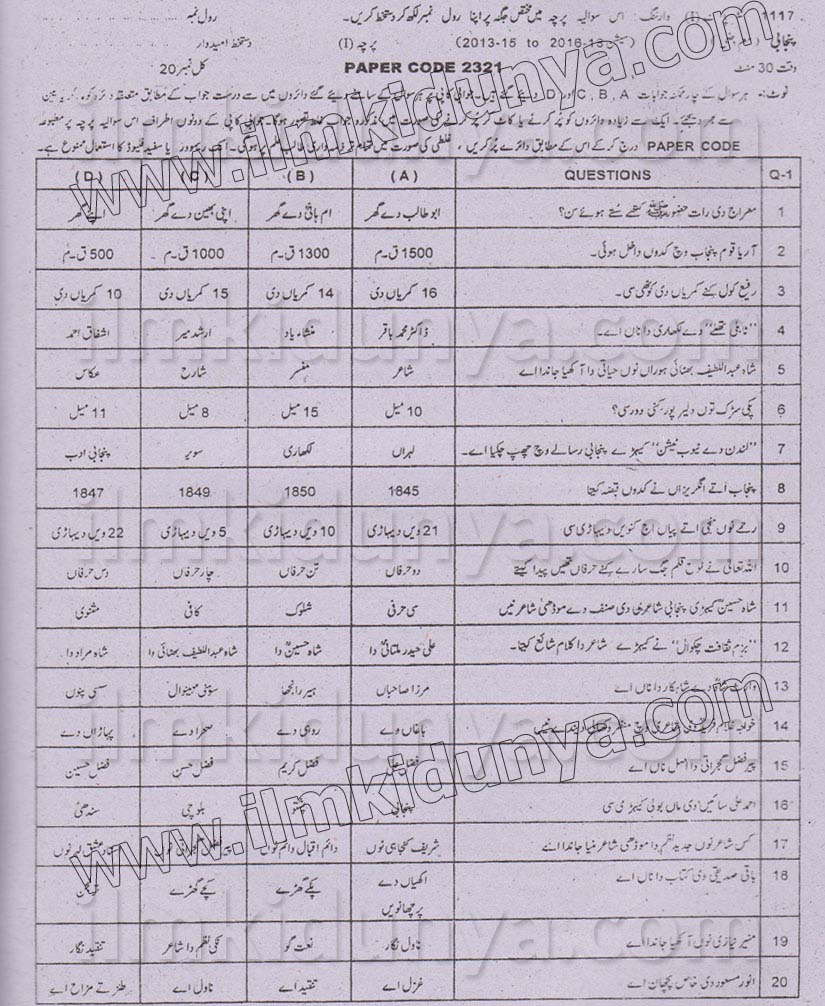 1117 وارننگ: اس سوالیہ پرچہ میں مختص جگہ پر اپنا رول نمبر لکھ کر دستخط کریں۔ رول نمبر
پنجابی (سیشن 2013-15 to 2016-18) پرچہ (I) دستخط امیدوار
وقت 30 منٹ PAPER CODE 2321 کل نمبر 20
نوٹ:- ہر سوال کے چار ممکنہ جوابات A, B, C اور D دیئے گئے ہیں۔ جوابی کاپی پر ہر سوال کے سامنے دیئے گئے دائروں میں سے درست جواب کے مطابق متعلقہ دائرہ کو
سے بھر دیجئے۔ ایک سے زیادہ دائروں کو پُر کرنے یا کاٹ کر پُر کرنے کی صورت میں مذکورہ جواب غلط تصور ہوگا۔ جوابی کاپی کے دونوں اطراف اس سوالیہ پرچہ پر مطبوعہ
PAPER CODE درج کر کے اس کے مطابق دائرے پُر کریں، غلطی کی صورت میں تمام تر ذمہ داری طالب علم پر ہوگی۔ یا سفید فلیوڈ کا استعمال ممنوع ہے۔
Q-1 QUESTIONS (A) (B) (C) (D)
1 معراج دی رات حضور ﷺ کتھے سُتے ہوئے سن؟ ابو طالب دے گھر ام ہانی دے گھر اپنی بھین دے گھر اپنے گھر
2 آریا قوم پنجاب وچ کدوں داخل ہوئی۔ 1500 ق-م 1300 ق-م 1000 ق-م 500 ق-م
3 رفیع کول کنے کمریاں دی کوٹھی سی۔ 16 کمریاں دی 14 کمریاں دی 15 کمریاں دی 10 کمریاں دی
4 "ٹاہلی تھلے" دے لکھاری دا ناں اے۔ ڈاکٹر محمد باقر منشاء یاد ارشد میر اشفاق احمد
5 شاہ عبداللطیف بھٹائی ہوراں نوں حیاتی دا آکھیا جاندا اے شاعر مفسر شارح عکاس
6 پکی سڑک توں دلیر پور کنی دور سی؟ 10 میل 15 میل 8 میل 11 میل
7 "لندن دے ٹیوب نیشن" کیہڑے پنجابی رسالے وچ چھپ چکیا اے۔ لہراں لکھاری سویر پنجابی ادب
8 پنجاب اُتے انگریزاں نے کدوں قبضہ کیتا 1845 1850 1849 1847
9 رحمے نوں منجی اتے پیاں اج کنویں دیہاڑی سی 21 ویں دیہاڑی 10 ویں دیہاڑی 5 ویں دیہاڑی 22 ویں دیہاڑی
10 اللہ تعالیٰ نے لوح قلم جگ سارے کنے حرفاں تھیں پیدا کیتے دو حرفاں تن حرفاں چار حرفاں دس حرفاں
11 شاہ حسینؒ کیہڑی پنجابی شاعری دی صنف دے موڈھی شاعر نیں سی حرفی شلوک کافی مثنوی
12 "بزم ثقافت چکوال" نے کیہڑے شاعر دا کلام شائع کیتا۔ علی حیدر ملتانیؒ دا شاہ حسینؒ دا شاہ عبداللطیف بھٹائی دا شاہ مراد دا
13 وارث شاہ دے شاہکار دا ناں اے مرزا صاحباں ہیر رانجھا سوہنی مہینوال سسی پنوں
14 خواجہ غلام فرید دی شاعری وچ منظر وکھالی دیندے نیں باغاں دے روہی دے صحرا دے پہاڑاں دے
15 پیر فضل گجراتی دا اصل ناں اے فضل علی فضل کریم فضل حسن فضل حسین
16 احمد علی سائیں دی ماں بولی کیہڑی سی پنجابی پشتو بلوچی سندھی
17 کس شاعر نوں جدید نظم دا موڈھی شاعر منیا جاندا اے شریف کنجاہی نوں دائم اقبال دائم نوں پیر فضل گجراتی نوں استاد عشق لہر نوں
18 باقی صدیقی دی کتاب دا ناں اے اکھیاں دے پرچھانویں پکے گھڑے کچے گھڑے
19 منیر نیازی نوں آکھیا جاندا اے ناول نگار نعت گو نکی نظم دا شاعر تنقید نگار
20 انور مسعود دی خاص پچھان اے غزل اے تنقید اے ناول اے طنز تے مزاح اے
www.ilmkidunya.com
www.ilmkidunya.com
ilmkidunya.com
ilmkidunya.com
ilmkidunya.com
ilmkidunya.com